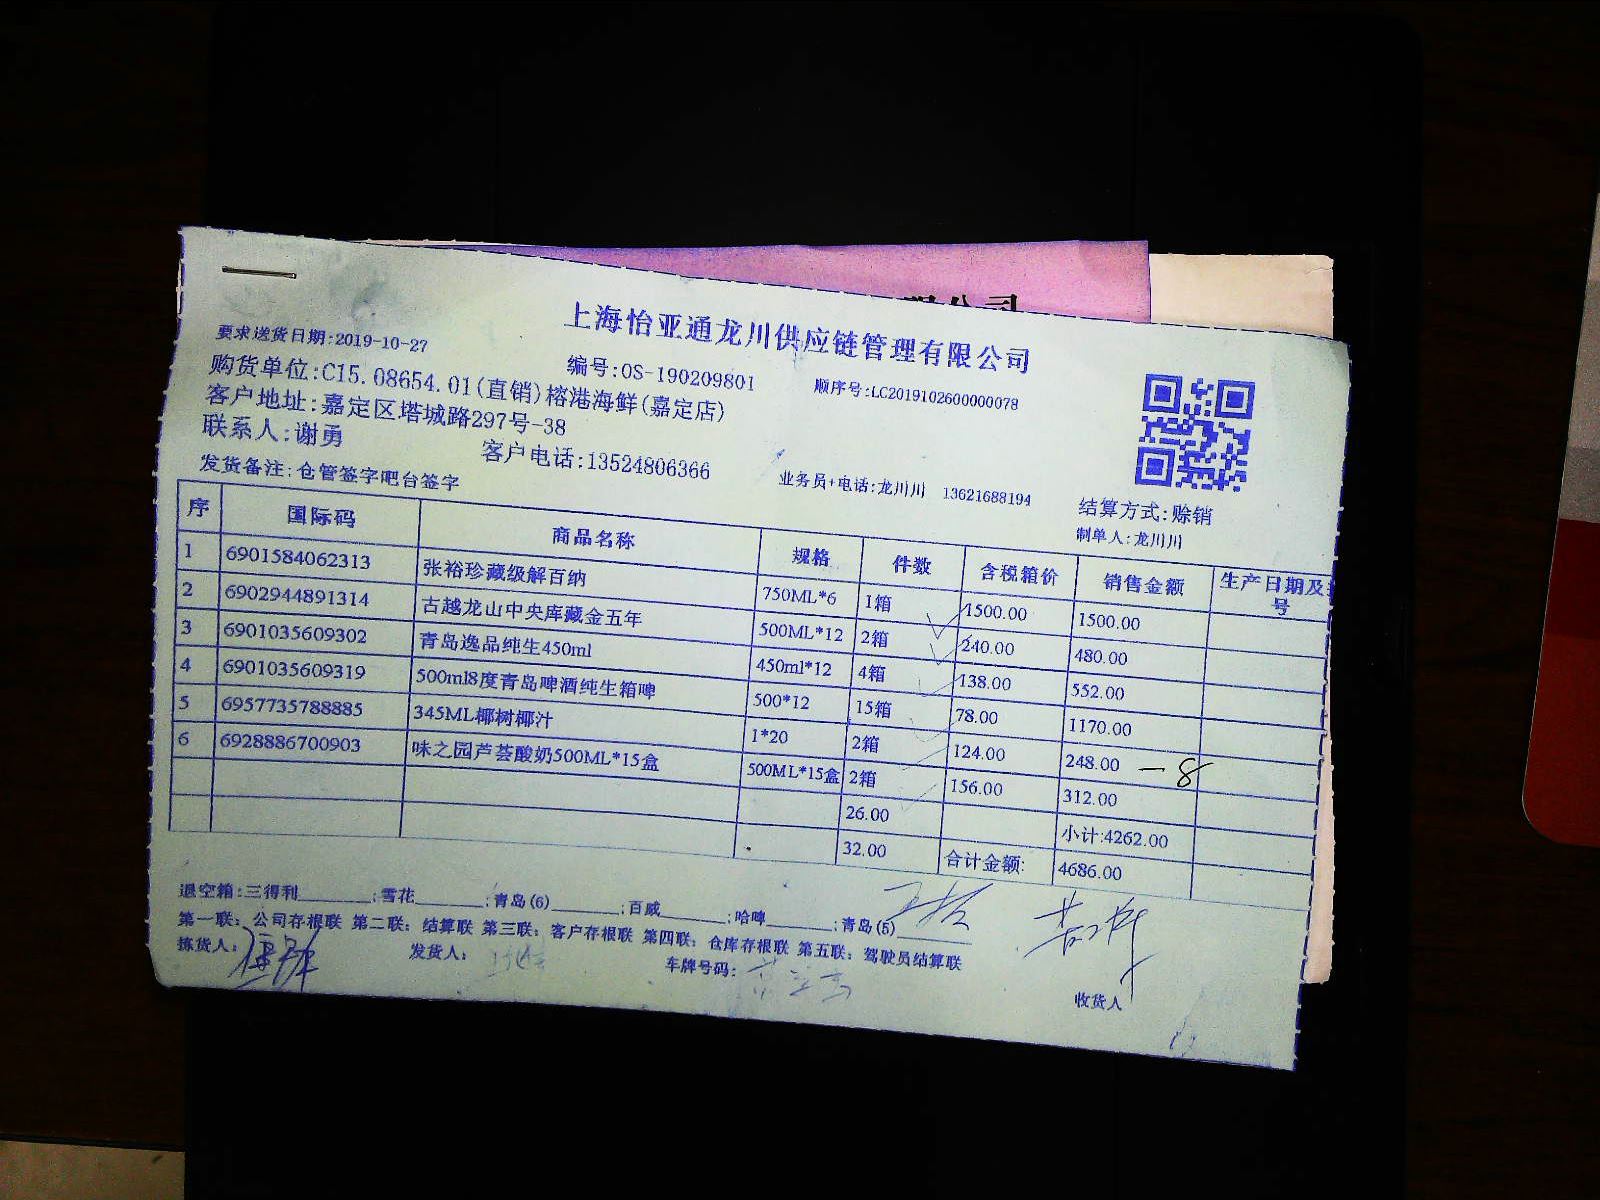 限公司
上海怡亚通龙川供应链管理有限公司
要求送货日期:2019-10-27
编号:OS-190209801
顺序号:LC2019102600000078
购货单位:C15.08654.01(直销)榕港海鲜(嘉定店)
客户地址:嘉定区塔城路297号-38
联系人:谢勇
客户电话:13524806366
业务员+电话:龙川川 13621688194
结算方式:赊销
发货备注:仓管签字吧台签字
制单人:龙川川
序 国际码 商品名称 规格 件数 含税箱价 销售金额 生产日期及
号
1 6901584062313 张裕珍藏级解百纳 750ML*6 1箱 1500.00 1500.00
2 6902944891314 古越龙山中央库藏金五年 500ML*12 2箱 240.00 480.00
3 6901035609302 青岛逸品纯生450ml 450ml*12 4箱 138.00 552.00
4 6901035609319 500ml8度青岛啤酒纯生箱啤 500*12 15箱 78.00 1170.00
5 6957735788885 345ML椰树椰汁 1*20 2箱 124.00 248.00 -8
6 6928886700903 味之园芦荟酸奶500ML*15盒 500ML*15盒 2箱 156.00 312.00
26.00 小计:4262.00
32.00 合计金额: 4686.00
退空箱:三得利______;雪花______;青岛(6)______;百威______;哈啤______;青岛(5)______
第一联:公司存根联 第二联:结算联 第三联:客户存根联 第四联:仓库存根联 第五联:驾驶员结算联
拣货人: 发货人: 车牌号码: 收货人